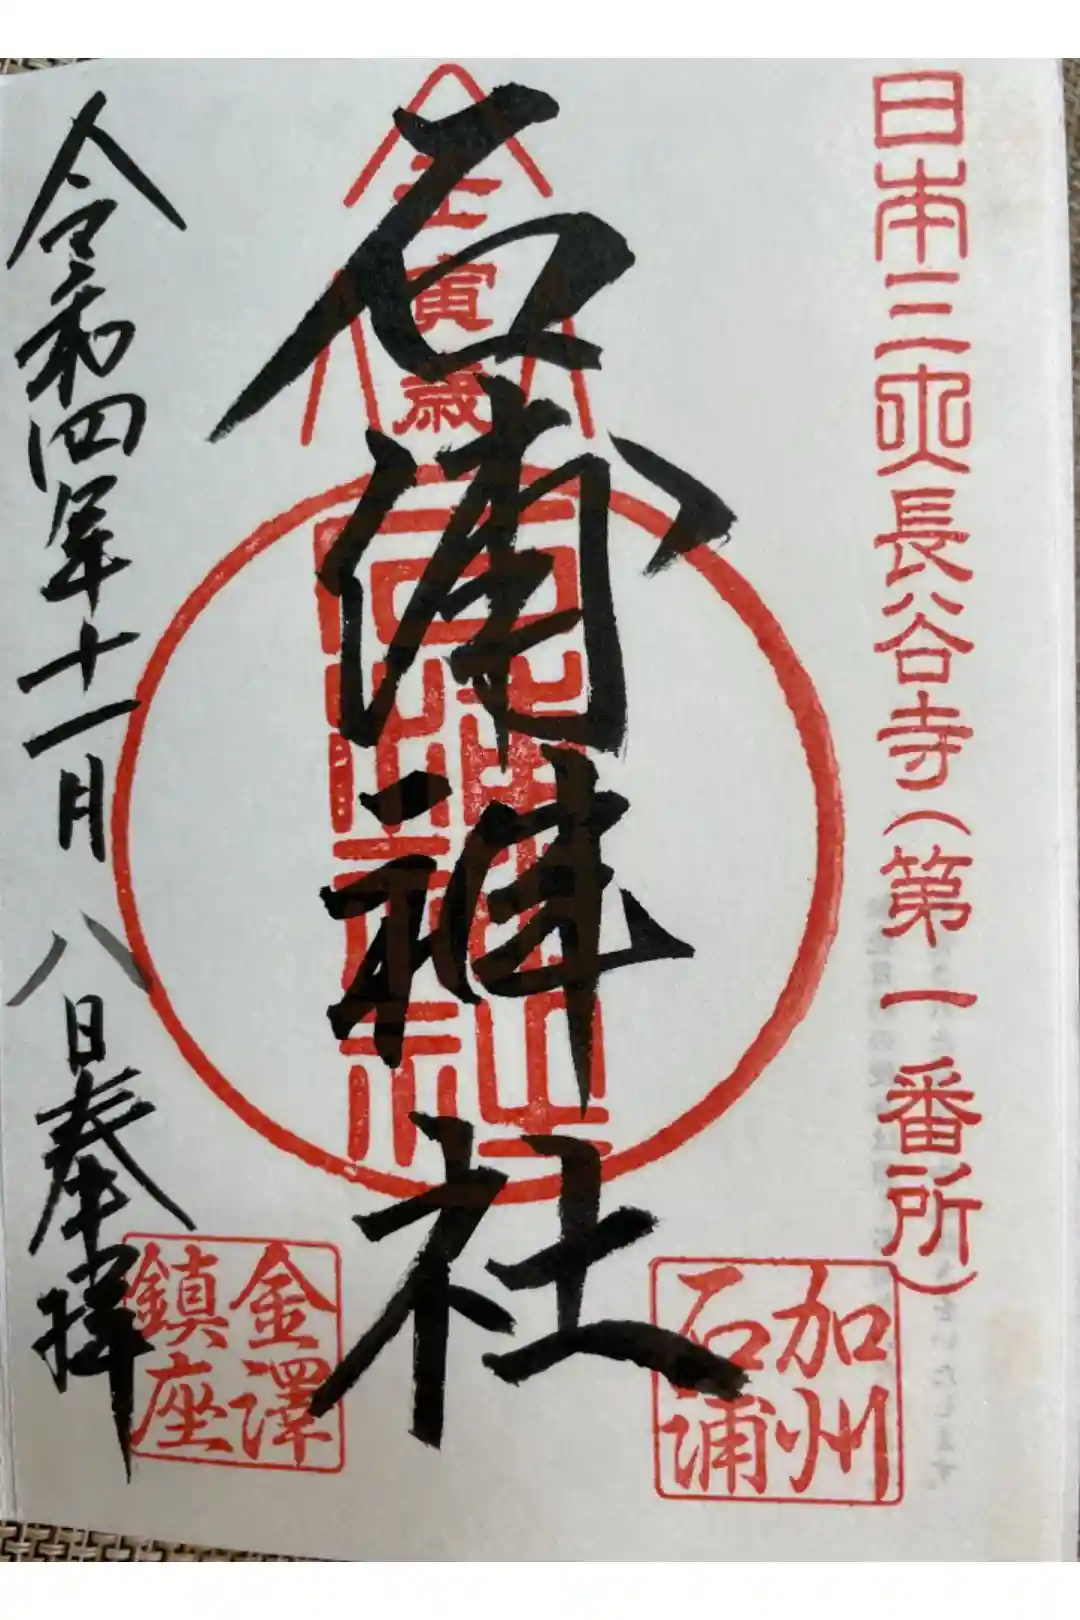 日本三所長谷寺（第一番所）
壬寅歳
石浦神社
加州
石浦
金澤
鎮座
令和四年十一月八日奉拝